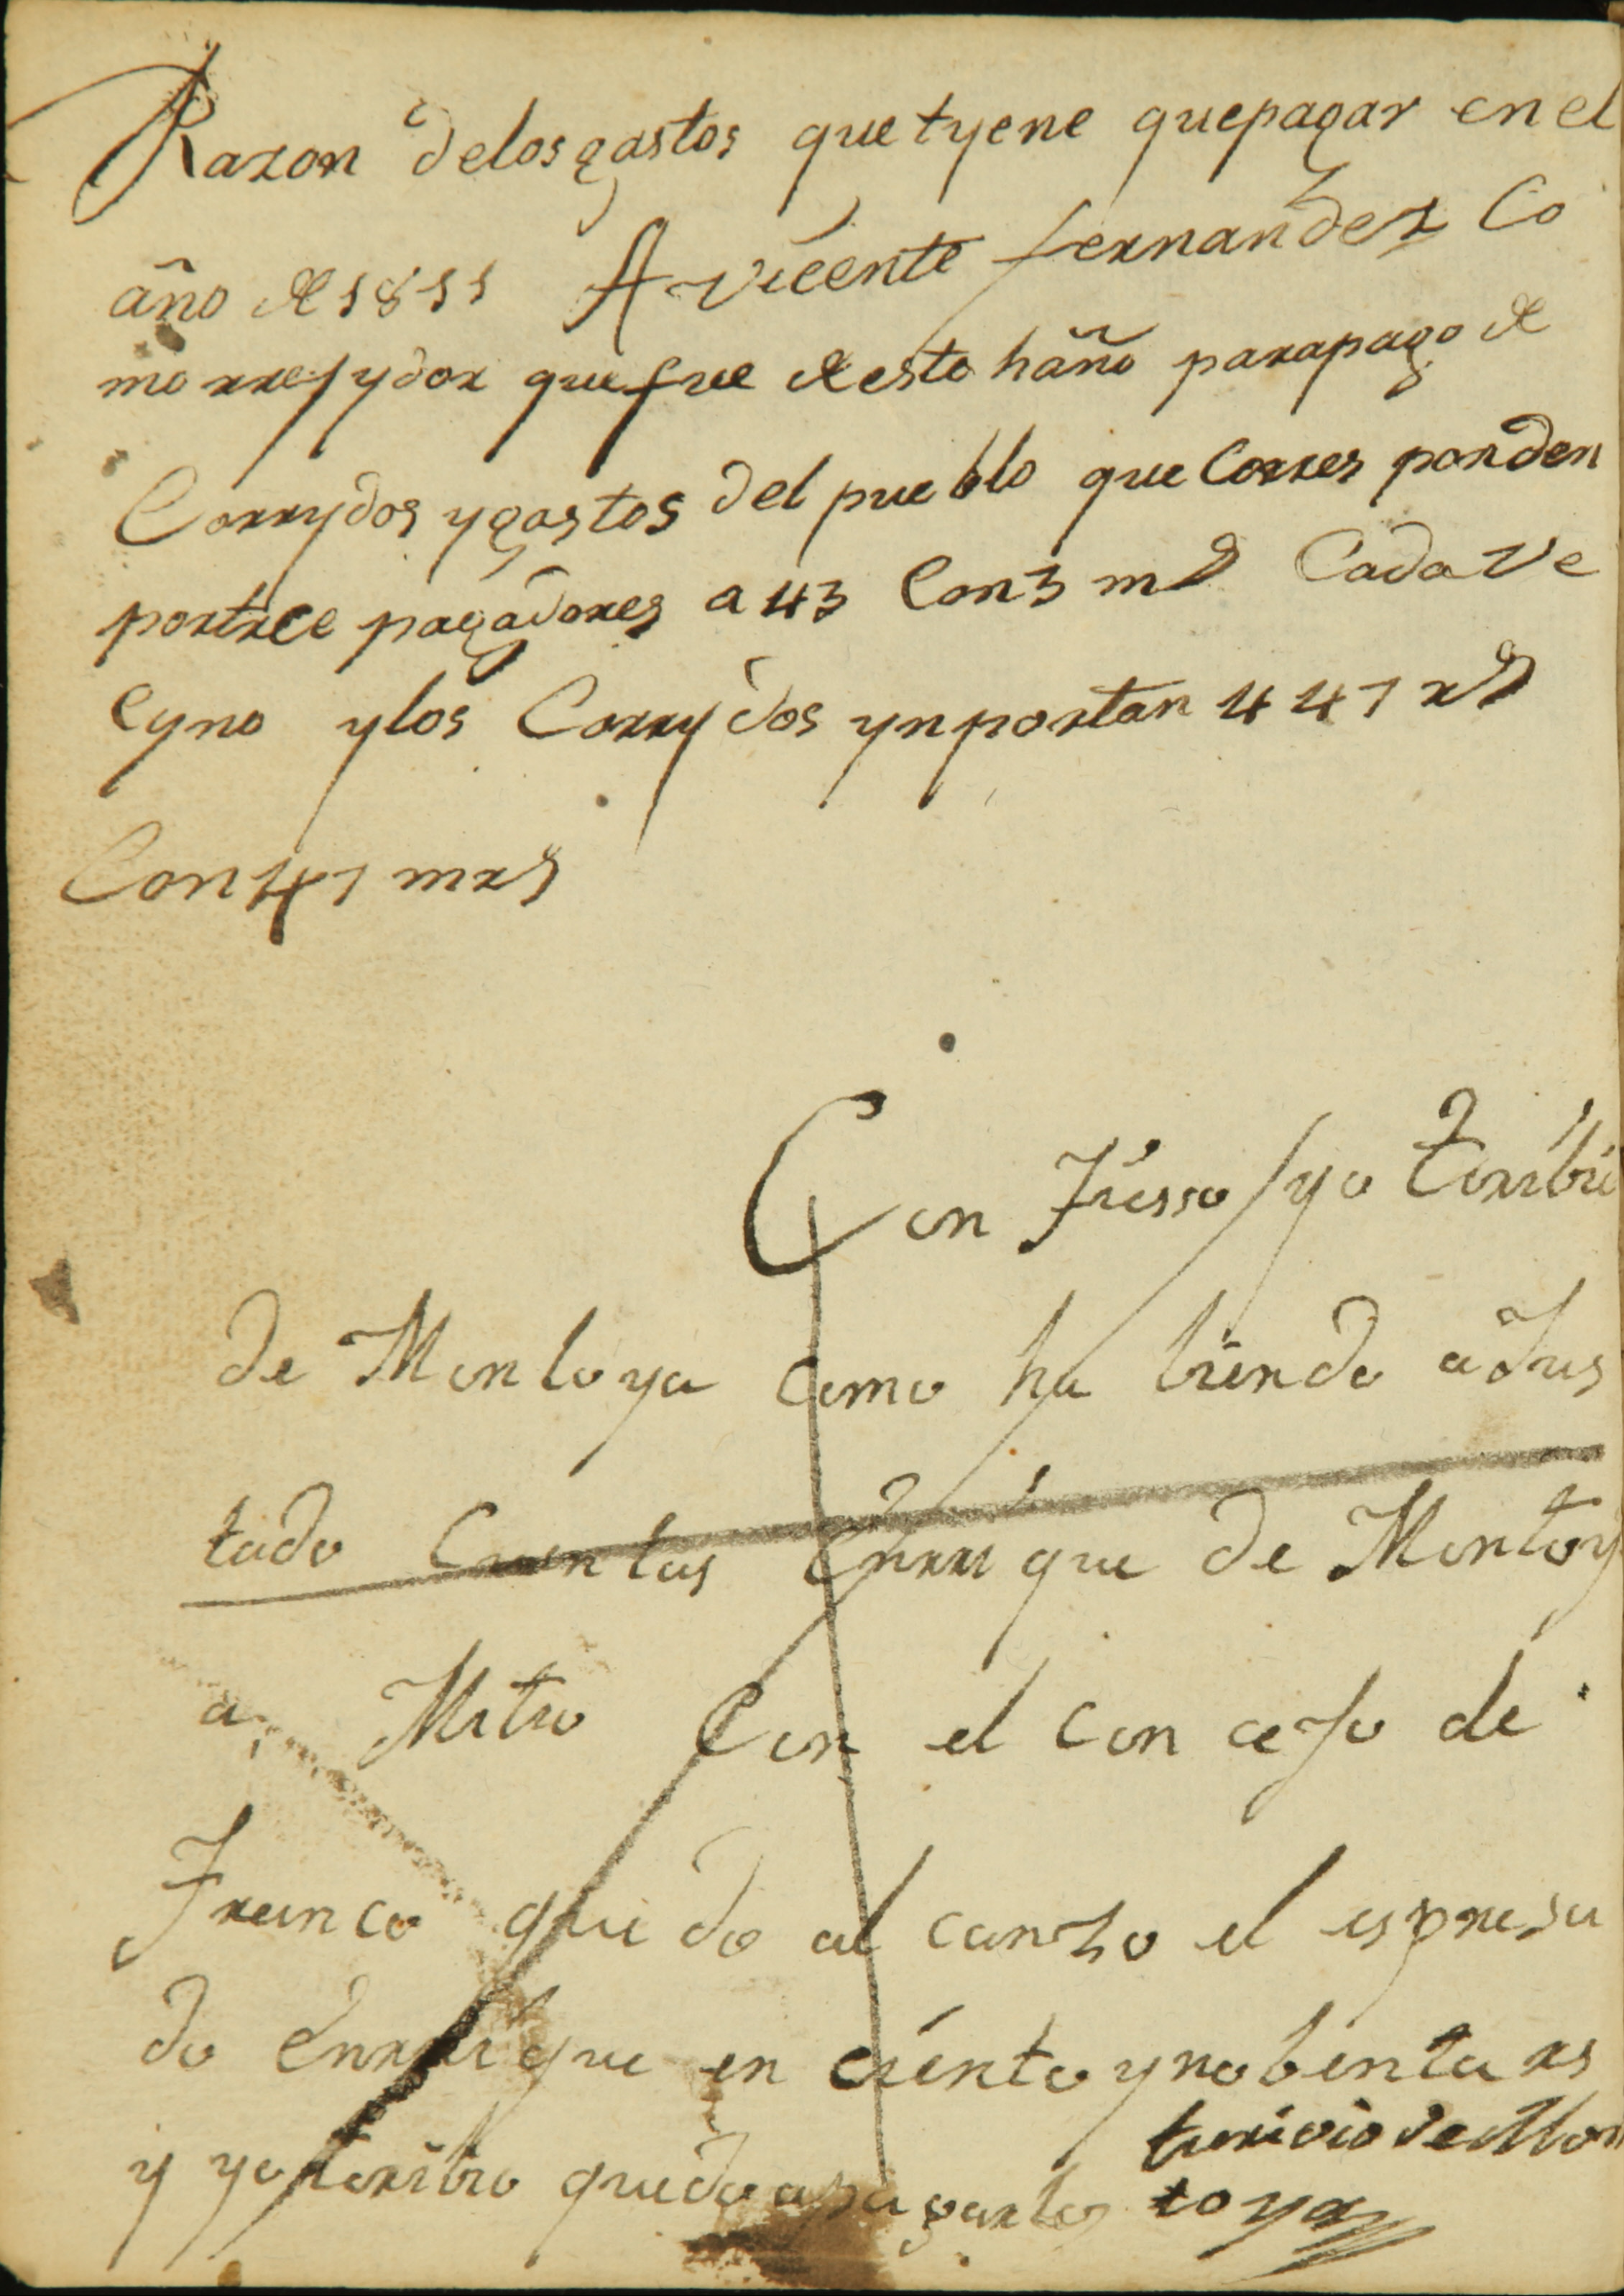 Razon delos gastos que tyene que pagar en el
año de 1811 A vicente fernandez Co
mo rrejydor que fue de este haño para pago de
Corrydos y gastos del pueblo que Corres ponden
por trece pagadores a 43 Con 3 mrs Cada Ve
cyno y los Corrydos ynportan 447 rs
Con 17 mrs
Con fiesso yo toribio
de Montoya Como ha biendo adjus
tado Cuentas Enrrique de Montoy
a, Mitio Con el Con cejo de
franco quedo al canzo el espresa
do Enrrique en ciento y nobenta rs
y yo toribio quedo a pagarlos turivio de Mon
toya